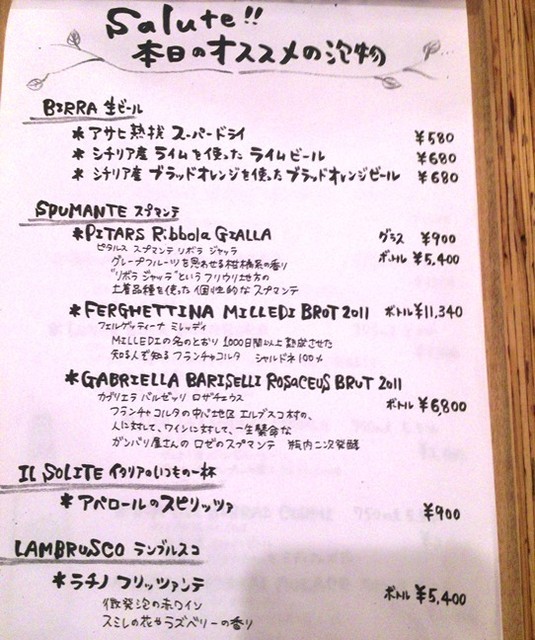 Salute!!
本日のオススメの泡物
BIRRA 生ビール
* アサヒ熟撰 スーパードライ ¥580
* シチリア産 ライムを使った ライムビール ¥680
* シチリア産 ブラッドオレンジを使ったブラッドオレンジビール ¥680
SPUMANTE スプマンテ
* PITARS Ribbola GIALLA グラス ¥900
ピタルス スプマンテ リボラ ジャッラ ボトル ¥5,400
グレープフルーツを思わせる柑橘系の香り
"リボラ ジャッラ"というフリウリ地方の
土着品種を使った個性的なスプマンテ
* FERGHETTINA MILLEDI BRUT 2011 ボトル ¥11,340
フェルゲッティーナ ミレッディ
MILLEDIの名のとおり 1000日間以上熟成させた
知る人ぞ知るフランチャコルタ シャルドネ100%
* GABRIELLA BARISELLI ROSACEUS BRUT 2011
カブリエラ バルゼッリ ロザチェウス ボトル ¥6800
フランチャコルタの中心地区 エルブスコ村の、
人に対して、ワインに対して、一生懸命な
ガンバリ屋さんの ロゼのスプマンテ 瓶内二次発酵
IL SOLITE イタリアのいつもの一杯
* アペロールのスピリッツァ ¥900
LAMBRUSCO ランブルスコ
* ラチノ フリッツァンテ ボトル ¥5,400
微発泡の赤ワイン
スミレの花やラズベリーの香り